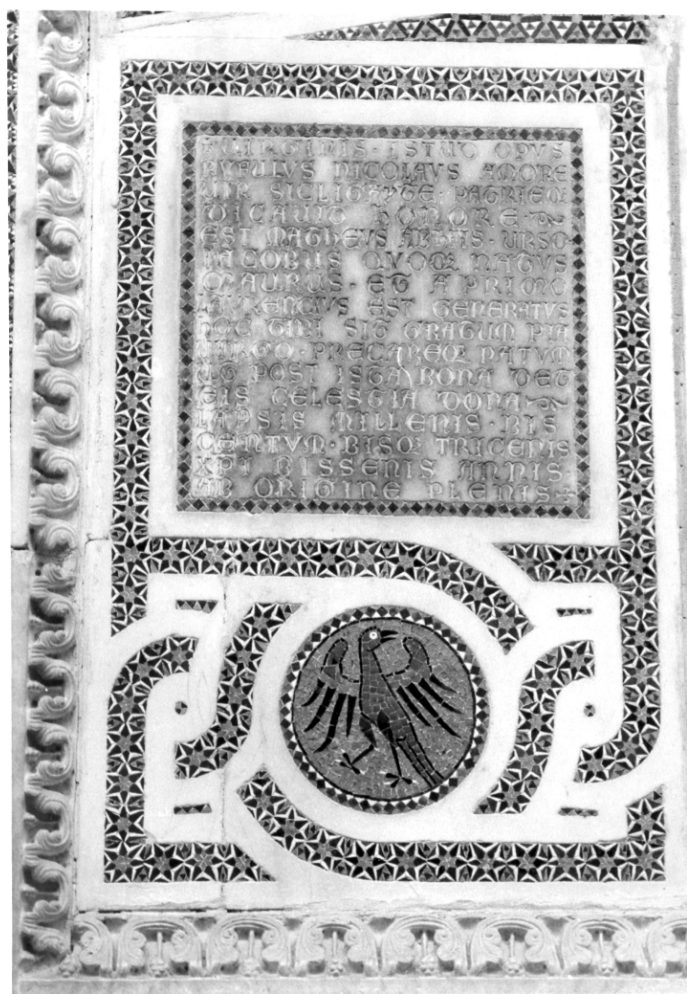 VIRGINIS · ISTUD OPUS
RUFULUS NICOLAUS AMORE
VIR SICLIGAYTE · PATRIEQ
DICAVIT HONORE ·
EST MATHEUS AB HIIS · URSO
IACOBUS QUOQ NATUS
MAURUS · ET A PRIMO
LAURENCIUS EST GENERATUS
HOC TIBI SIT GRATUM PIA
VIRGO · PRECAREQ NATUM
UT POST ISTA BONA DET
EIS CELESTIA DONA
LAPSIS MILLENIS · BIS
CENTUM · BISQ TRICENIS
XPI BISSENIS ANNIS
AB ORIGINE PLENIS